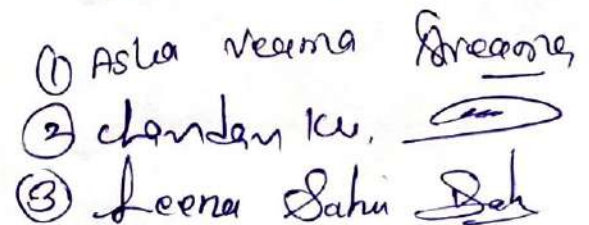 ① Asha Verma
② Chandan Ku.
③ Leena Sahu